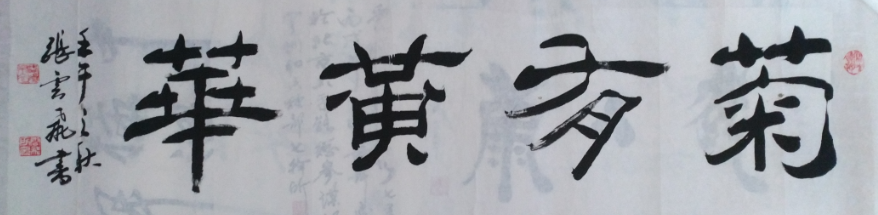 菊有黃華
壬午之秋
張雲飛書